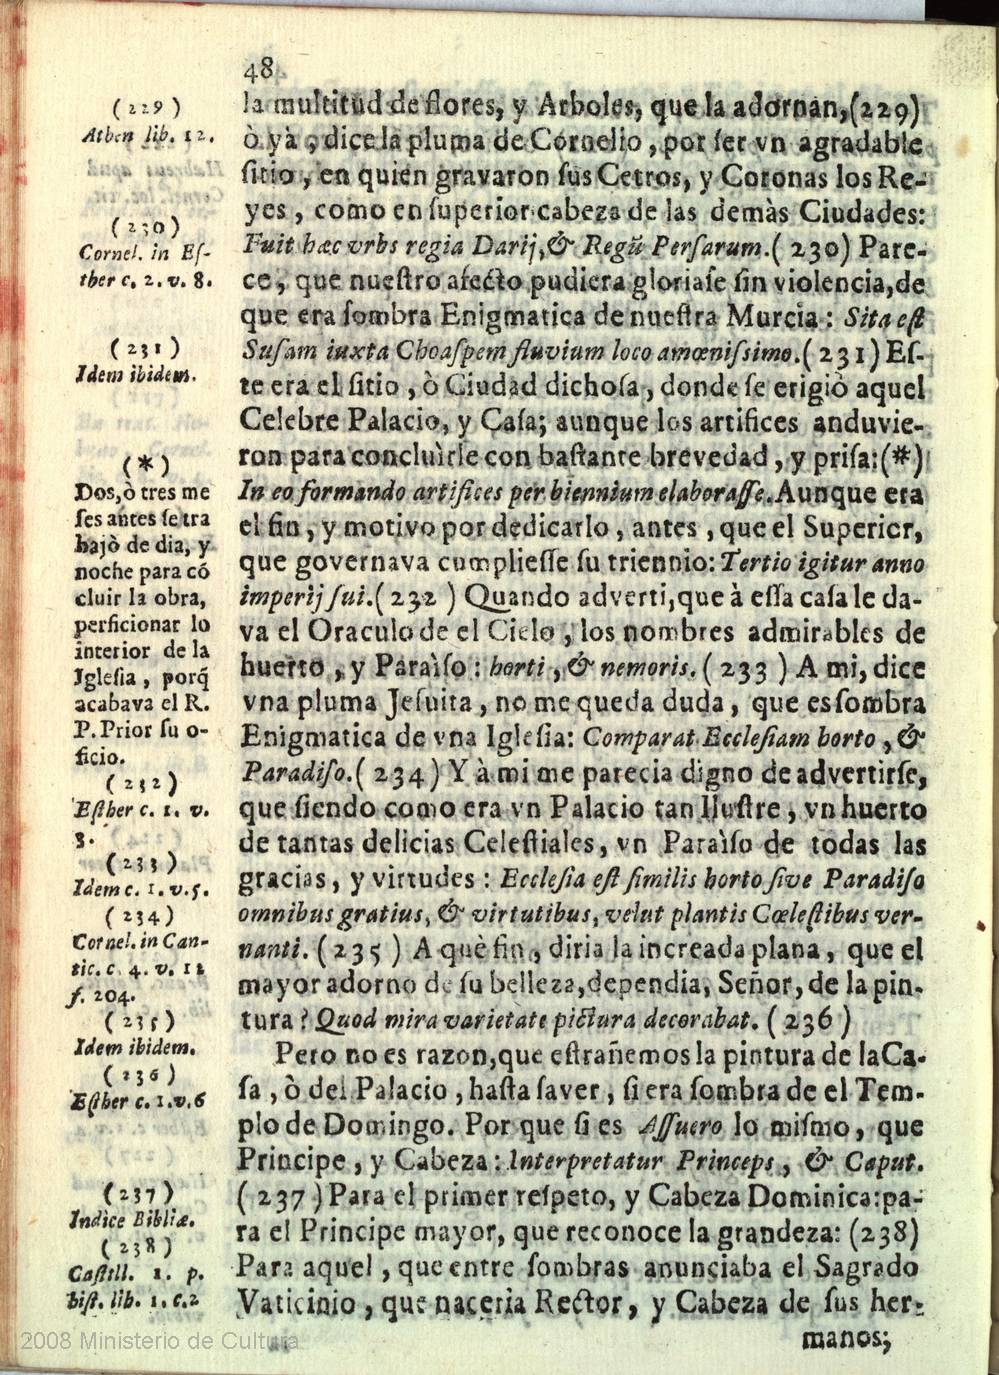 48
la multitud de flores, y Arboles, que la adornàn,(229)
ò yà, dice la pluma de Cornelio, por ſer vn agradable
ſitio, en quien gravaron ſus Cetros, y Coronas los Re-
yes, como en ſuperior cabeza de las demàs Ciudades:
Fuit hæc vrbs regia Darij, & Regũ Perſarum.(230) Pare-
ce, que nueſtro afecto pudiera gloriaſe ſin violencia, de
que era ſombra Enigmatica de nueſtra Murcia: Sita eſt
Suſam iuxta Choaſpem fluvium loco amœniſsimo.(231) Eſ-
te era el ſitio, ò Ciudad dichoſa, donde ſe erigiò aquel
Celebre Palacio, y Caſa; aunque los artifices anduvie-
ron para concluìrle con baſtante brevedad, y priſa:(*)
In eo formando artifices per biennium elaboraſſe. Aunque era
el fin, y motivo por dedicarlo, antes, que el Superior,
que governava cumplieſſe ſu triennio: Tertio igitur anno
imperij ſui.(232) Quando adverti, que à eſſa caſa le da-
va el Oraculo de el Cielo, los nombres admirables de
huerto, y Paraìſo: horti, & nemoris.(233) A mi, dice
vna pluma Jeſuita, no me queda duda, que es ſombra
Enigmatica de vna Igleſia: Comparat Eccleſiam horto, &
Paradiſo.(234) Y à mi me parecia digno de advertirſe,
que ſiendo como era vn Palacio tan Iluſtre, vn huerto
de tantas delicias Celeſtiales, vn Paraìſo de todas las
gracias, y virtudes: Eccleſia eſt ſimilis horto ſive Paradiſo
omnibus gratius, & virtutibus, velut plantis Cœleſtibus ver-
nanti.(235) A què fin, diria la increada plana, que el
mayor adorno de ſu belleza, dependia, Señor, de la pin-
tura? Quod mira varietate pictura decorabat.(236)
Pero no es razon, que eſtrañemos la pintura de la Ca-
ſa, ò del Palacio, haſta ſaver, ſi era ſombra de el Tem-
plo de Domingo. Por que ſi es Aſſuero lo miſmo, que
Principe, y Cabeza: Interpretatur Princeps, & Caput.
(237) Para el primer reſpeto, y Cabeza Dominica: pa-
ra el Principe mayor, que reconoce la grandeza: (238)
Para aquel, que entre ſombras anunciaba el Sagrado
Vaticinio, que naceria Rector, y Cabeza de ſus her-
manos;
(229)
Athen lib. 12.
(230)
Cornel. in Eſ-
ther c. 2. v. 8.
(231)
Idem ibidem.
(*)
Dos, ò tres me
ſes antes ſe tra
bajò de dia, y
noche para cõ
cluir la obra,
perficionar lo
interior de la
Igleſia, porq̃
acabava el R.
P. Prior ſu o-
ficio.
(232)
Eſther c. 1. v.
3.
(233)
Idem c. 1. v. 5.
(234)
Cornel. in Can-
tic. c. 4. v. 12
f. 204.
(235)
Idem ibidem.
(236)
Eſther c. 1. v. 6
(237)
Indice Bibliæ.
(238)
Caſtill. 1. p.
hiſt. lib. 1. c. 2
2008 Ministerio de Cultura